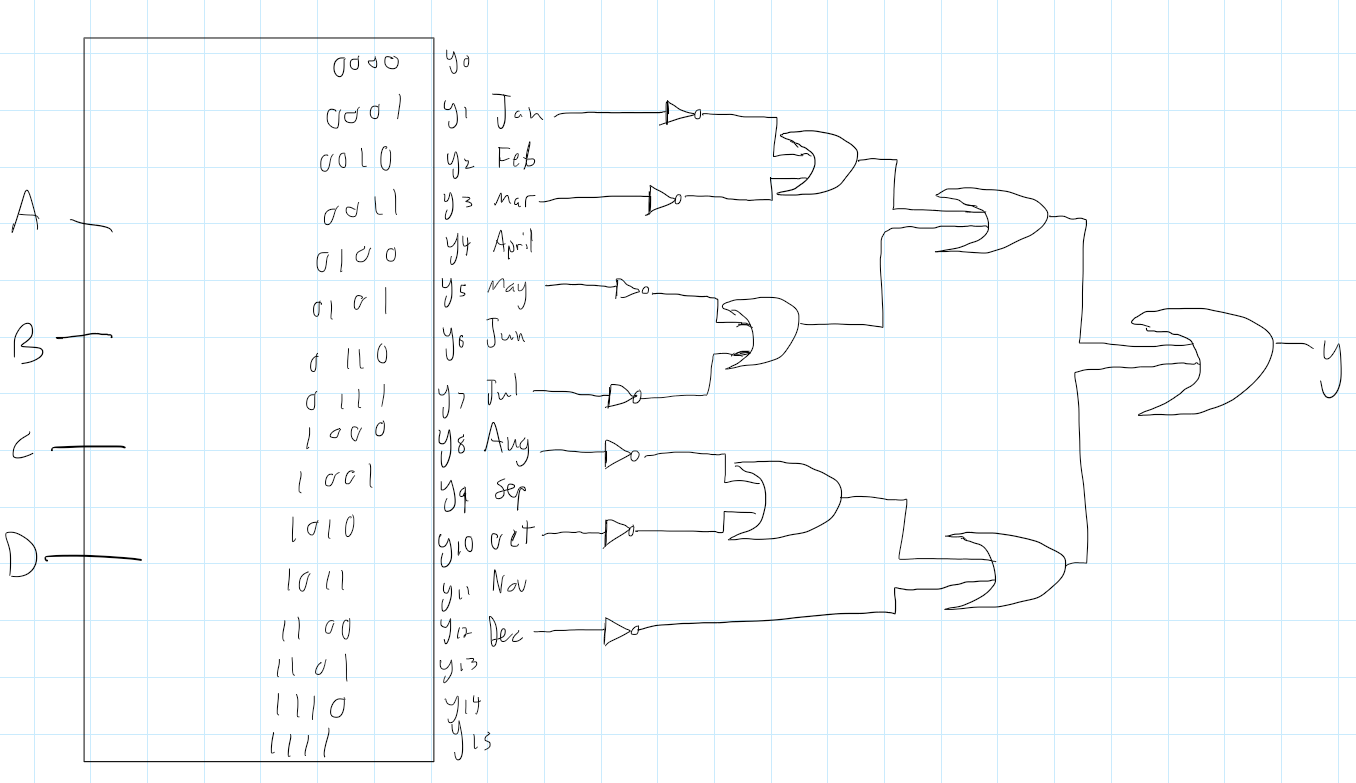 0000 y0
0001 y1 Jan
0010 y2 Feb
A
0011 y3 mar
0100 y4 April
0101 y5 may
B
0110 y6 Jun
0111 y7 Jul
y
1000 y8 Aug
C
1001 y9 Sep
1010 y10 oct
D
1011 y11 Nov
1100 y12 Dec
1101 y13
1110 y14
1111 y15